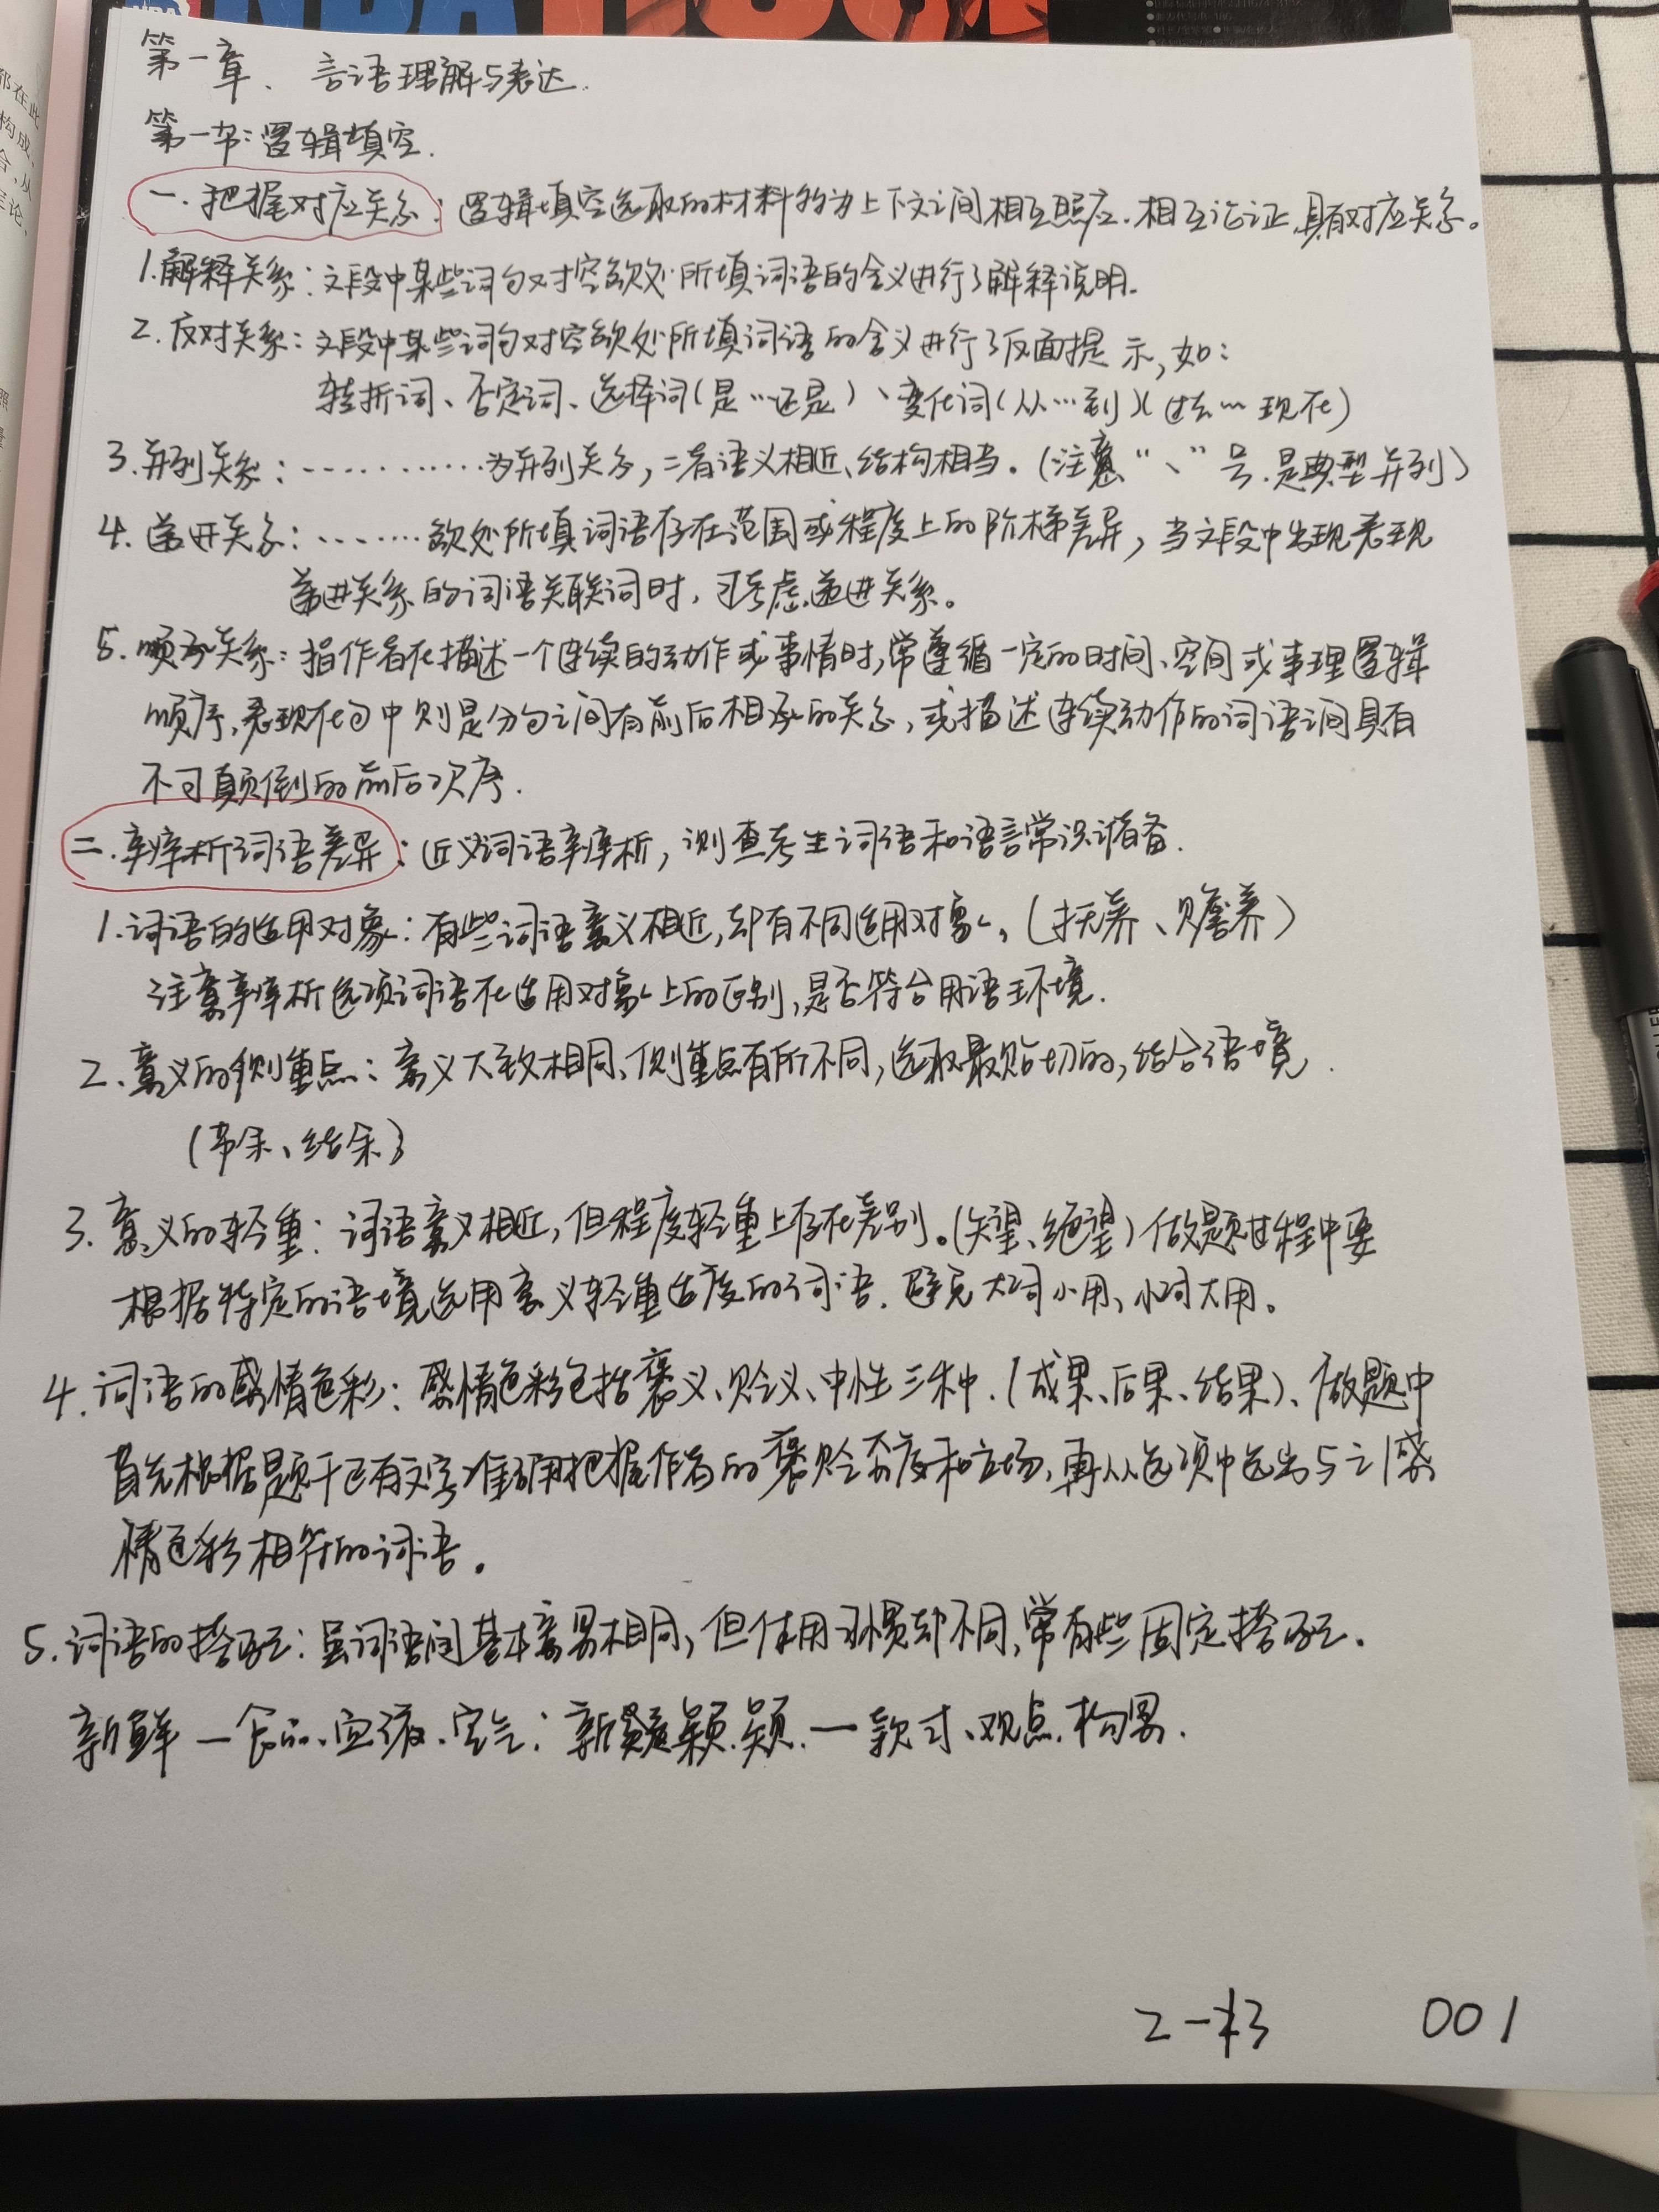 第一章、言语理解与表达.
第一节:逻辑填空.
一.把握对应关系:逻辑填空选取的材料均为上下文之间相互照应.相互论证,具有对应关系。
1.解释关系:文段中某些词句对空缺处所填词语的含义进行了解释说明.
2.反对关系:文段中某些词句对空缺处所填词语的含义进行了反面提示,如:
转折词、否定词、选择词(是…还是)、变化词(从…到)(过去…现在)
3.并列关系:…………为并列关系,二者语义相近、结构相当。(注意“、”号.是典型并列)
4.递进关系:………缺处所填词语存在范围或程度上的阶梯差异,当文段中出现表现
递进关系的词语关联词时,可考虑递进关系。
5.顺承关系:指作者在描述一个连续的动作或事情时,常遵循一定的时间、空间或事理逻辑
顺序,表现在句中则是分句之间有前后相承的关系,或描述连续动作的词语间具有
不可颠倒的前后次序.
二.辨析词语差异:近义词语辨析,测查考生词语和语言常识储备.
1.词语的适用对象:有些词语意义相近,却有不同适用对象。(抚养、赡养)
注意辨析选项词语在适用对象上的区别,是否符合用语环境.
2.意义的侧重点:意义大致相同、侧重点有所不同,选取最贴切的,结合语境.
(节余、结余)
3.意义的轻重:词语意义相近,但程度轻重上存在差别。(失望、绝望)做题过程中要
根据特定的语境选用意义轻重适度的词语.避免大词小用、小词大用。
4.词语的感情色彩:感情色彩包括褒义、贬义、中性三种.(成果、后果、结果)、做题中
首先根据题干已有文字准确把握作者的褒贬态度和立场,再从选项中选出与之感
情色彩相符的词语。
5.词语的搭配:虽词语间基本意思相同,但使用习惯却不同,常有些固定搭配.
新鲜一食品、血液、空气;新颖.一款式、观点.构思.
001
NBA